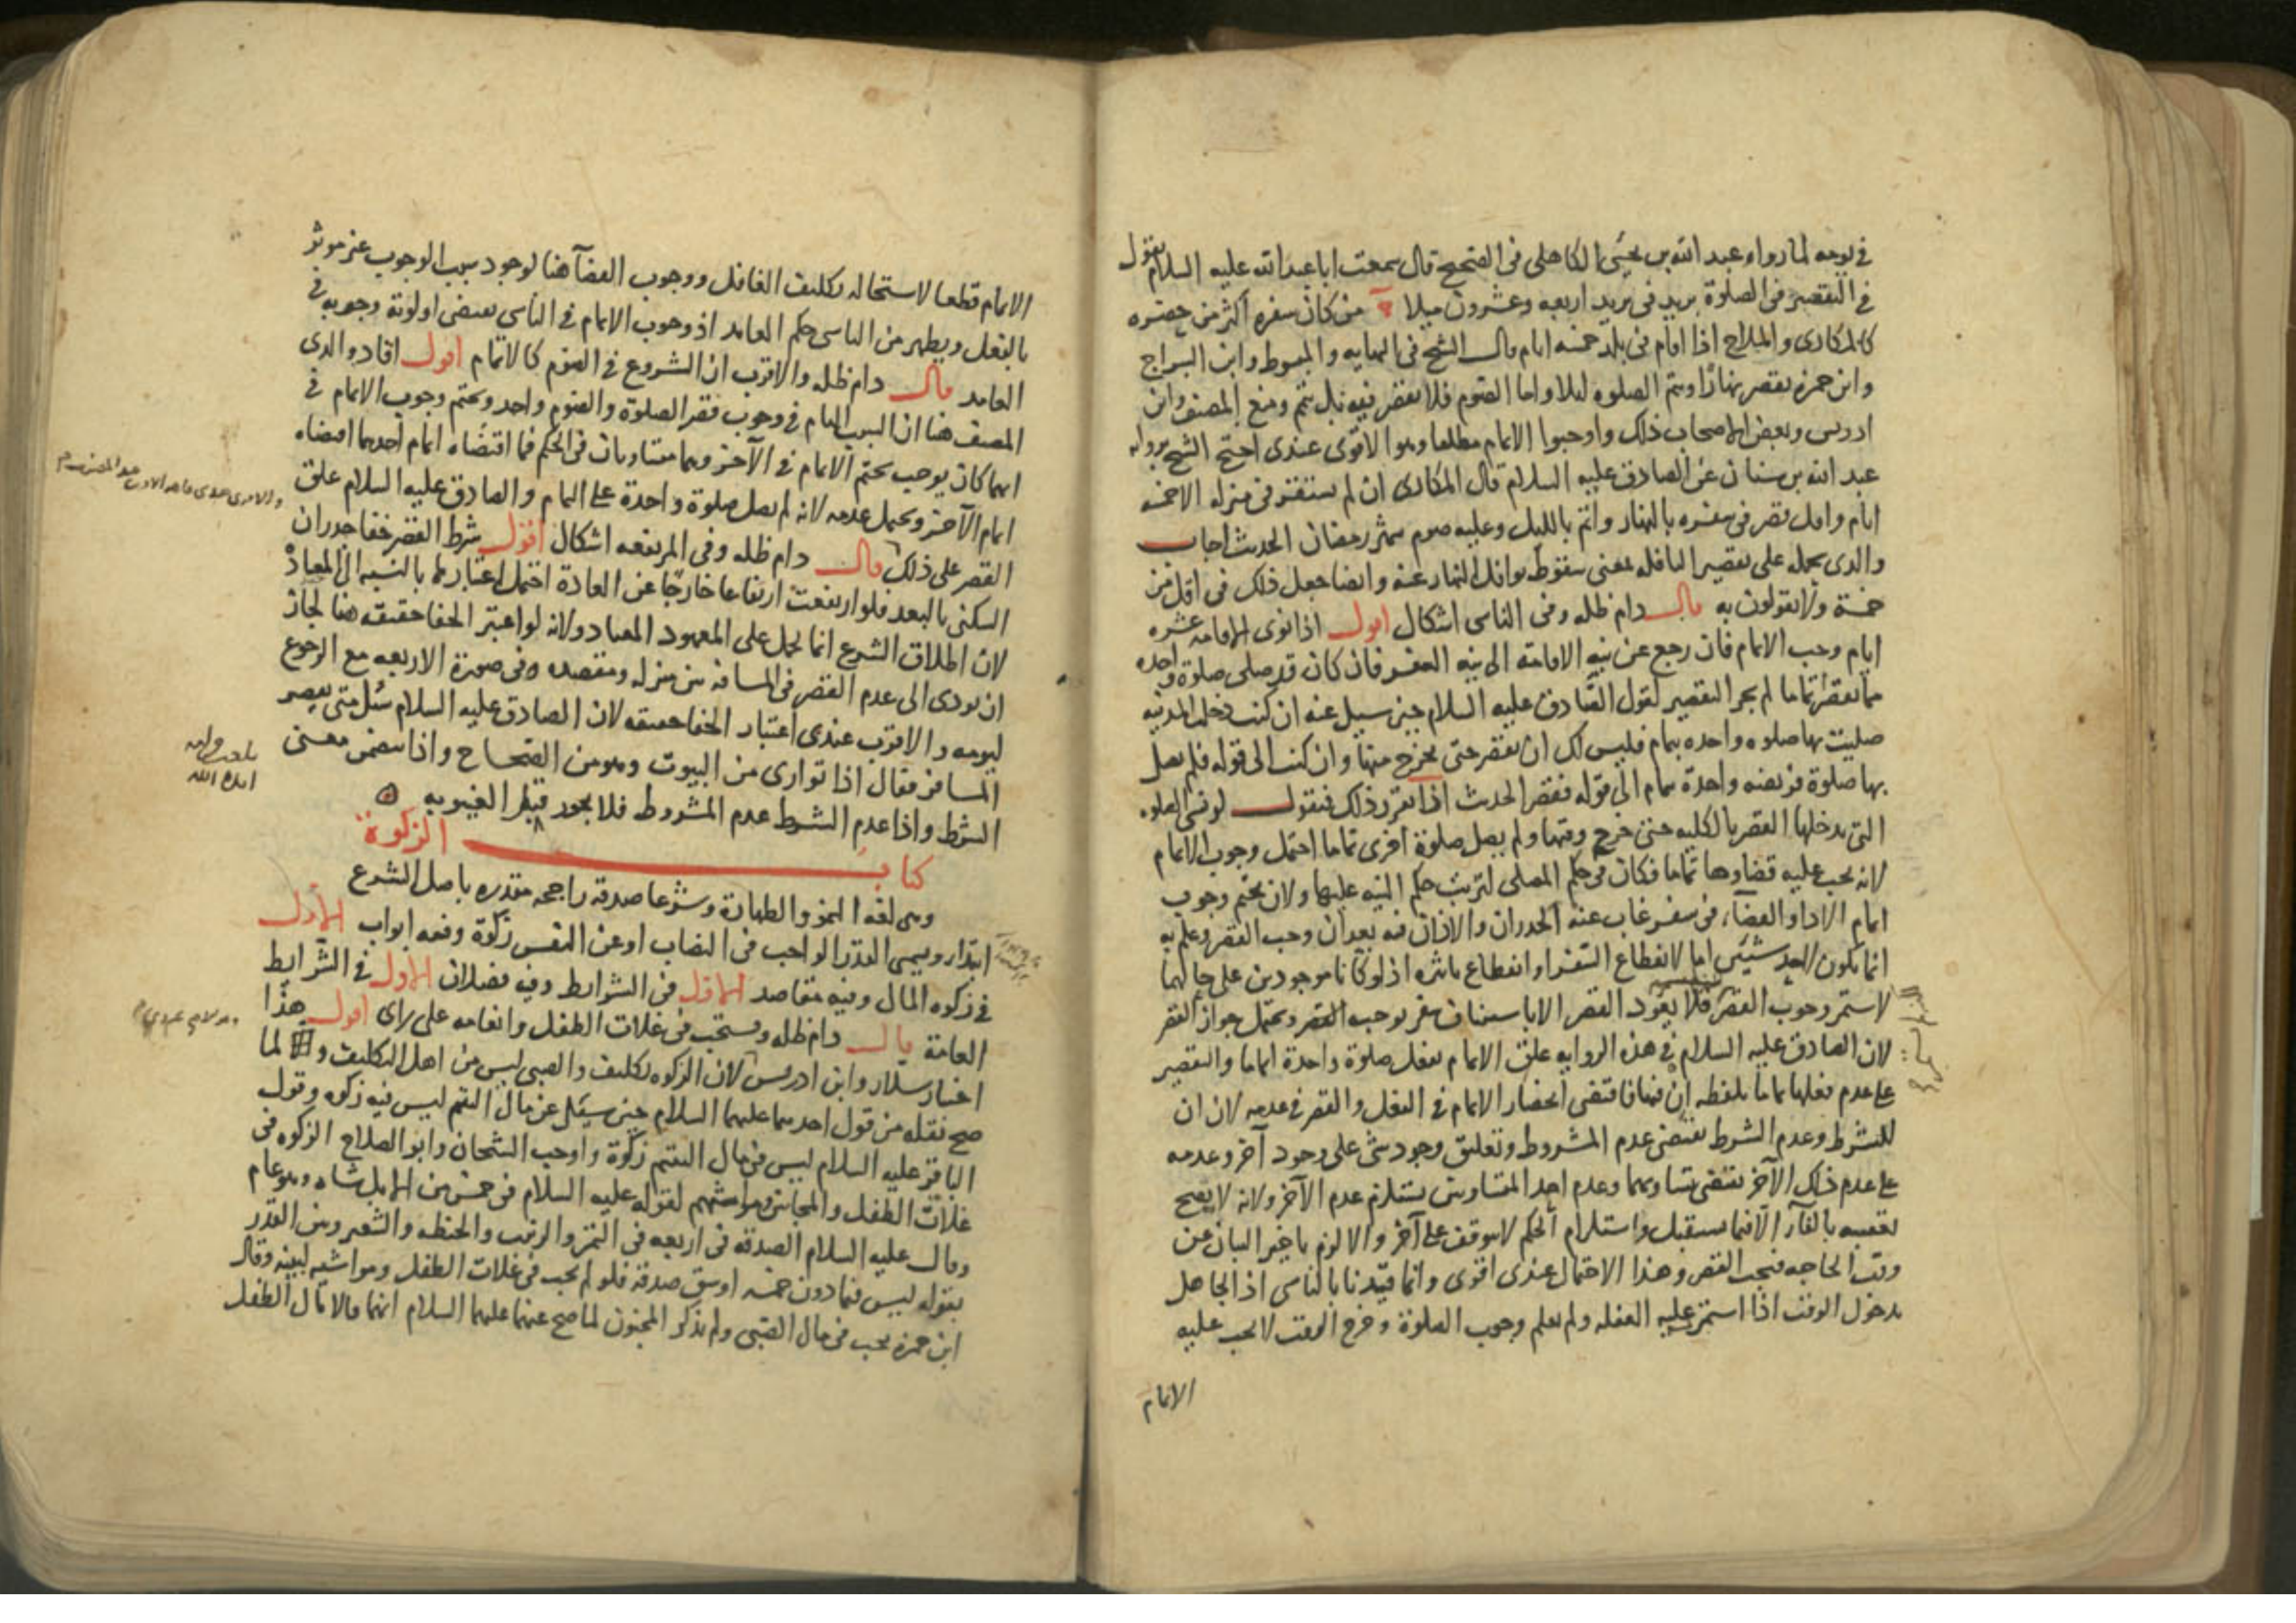 في يومه لما رواه عبد الله بن يحيى الكاهلي في الصحيح قال سمعت ابا عبد الله عليه السلام يقول
في التقصير في الصلوة بريد في بريد اربعه وعشرون ميلا من كان سفره اكثر من حضره
كالمكاري والملاح اذا اقام في بلد خمسه ايام قال الشيخ في النهايه والمبسوط وابن البراج
وابن حمزه يقصر نهارًا ويتم الصلوه ليلا واما الصوم فلا يقصر فيه بل يتم ومنع المصنف وابن
ادريس وبعض الاصحاب ذلك واوجبوا الاتمام مطلقا وهو الاقوى عندي احتج الشيخ بروايه
عبد الله بن سنان عن الصادق عليه السلام قال المكاري ان لم يستقر في منزله الا خمسه
ايام واقل قصر في سفره بالنهار واتم بالليل وعليه صوم شهر رمضان الحديث اجاب
والدي بحمله على تقصير النافله بمعنى سقوط نوافل النهار عنه وايضا جعل ذلك في اقل من
خمسة ولا يقولون به قال دام ظله وفي الناسي اشكال اقول اذا نوى الاقامه عشره
ايام وجب الاتمام فان رجع عن نيه الاقامه الى نيه السفر فان كان قد صلى صلوة واحده
مما يقصر تماما لم يجز التقصير لقول الصادق عليه السلام حين سيل عنه ان كنت دخلت المدينه
صليت بها صلوه واحده بتمام فليس لك ان تقصر حتى تخرج منها وان كنت الى قوله فلم تصل
بها صلوة فريضه واحدة بتمام الى قوله فقصر الحديث اذا تقرر ذلك فنقول لو نسي الصلوه
التي يدخلها القصر بالكليه حتى خرج وقتها ولم يصل صلوة اخرى تماما احتمل وجوب الاتمام
لانه يجب عليه قضاوها تماما فكان في حكم المصلى لترتب حكم النيه عليها ولان تحتم وجوب
اتمام الادا والقضآء في سفر غاب عنه الجدران والاذان فيه بعد ان وجب القصر وعلم به
انما يكون لاحد شيئى اما لانقطاع السفر او انقطاع تاثره اذ لو كانا موجودين على حالهما
لاستمر وجوب القصر فلا يعود القصر الا باستيناف سفر يوجب القصر ويحتمل جواز القصر
لان الصادق عليه السلام في هذه الروايه علق الاتمام بفعل صلوة واحدة تماما والتقصير
على عدم فعلها تماما بلفظه ان فيهما فاقتضى انحصار الاتمام في الفعل والقصر في عدمه لان ان
للشرط وعدم الشرط يقتضى عدم المشروط وتعليق وجود شئ على وجود آخر وعدمه
على عدم ذلك الآخر يقتضى تساويهما وعدم احد المتساويين يستلزم عدم الآخر ولانه لا يصح
تعقيبه بالفآء الا فيما يستقبل واستلزام الحكم لا يتوقف على آخر والا لزم تاخير البيان عن
وقت الحاجه فيجب القصر وهذا الاحتمال عندي اقوى وانما قيّدنا بالناسي اذ الجاهل
بدخول الوقت اذا استمر عليه الغفله ولم يعلم وجوب الصلوة وخرج الوقت لا يجب عليه
الاتمام
الاتمام قطعا لاستحاله تكليف الغافل ووجوب القضآء هنا لوجود سبب الوجوب عن موثر
بالفعل ويظهر من الناسي حكم العامد اذ وجوب الاتمام في الناسي يقتضى اولوية وجوبه في
العامد قال دام ظله والاقرب ان الشروع في الصوم كالاتمام اقول افاد والدي
المصنف هنا ان السبب التام في وجوب قصر الصلوة والصوم واحد وتحتم وجوب الاتمام في
ايهما كان يوجب تحتم الاتمام في الآخر وهما متساويان في الحكم فما اقتضاه اتمام أحدهما اقتضاه
اتمام الآخر ويحتمل عدمه لانه لم يصل صلوة واحدة على التمام والصادق عليه السلام علق
القصر على ذلك قال دام ظله وفي المرتفعه اشكال اقول شرط القصر خفا جدران
السكنى بالبعد فلو ارتفعت ارتفاعا خارجًا عن العادة احتمل اعتبارها بالنسبه الى المعتاد
لان اطلاق الشرع انما يحمل على المعهود المعتاد ولانه لو اعتبر الخفا حقيقه هنا لجاز
ان يودى الى عدم القصر في المسافه بين منزله ومقصده وفي صورة الاربعه مع الرجوع
ليومه والاقرب عندي اعتبار الخفا حقيقه لان الصادق عليه السلام سُئل متى يقصر
المسافر فقال اذا توارى من البيوت وهو من الصحاح واذا يتضمن معنى
الشرط واذا عدم الشرط عدم المشروط فلا يجوز قبل الغيبوبه
كتاب الزكوة
وهي لغه النمو والطهارة وشرعا صدقه راجحه مقدره باصل الشرع
ابتدا ويسمى القدر الواجب في النصاب او عن النفس زكوة وفيه ابواب الاول
في زكوه المال وفيه مقاصد الاول في الشرايط وفيه فصلان الاول في الشرايط
العامة قال دام ظله ويستحب في غلات الطفل وانعامه على راى اقول هذا
اختيار سلار وابن ادريس لان الزكوه تكليف والصبي ليس من اهل التكليف و لما
صح نقله من قول احدهما عليهما السلام حين سيئل عن مال اليتيم ليس فيه زكوه وقول
الباقر عليه السلام ليس في مال اليتيم زكوة واوجب الشيخان وابو الصلاح الزكوه في
غلات الطفل والمجانين ومواشيهم لقوله عليه السلام في خمس من الابل شاه وهو عام
وقال عليه السلام الصدقه في اربعه في التمر والزبيب والحنطه والشعير وبين القدر
بقوله ليس فيما دون خمسه اوسق صدقه فلو لم يجب في غلات الطفل ومواشيه لبينه وقال
ابن حمزه يجب في مال الصبي ولم يذكر المجنون لما صح عنهما عليهما السلام انهما قالا مال الطفل
بلغت قراءه
ايده الله